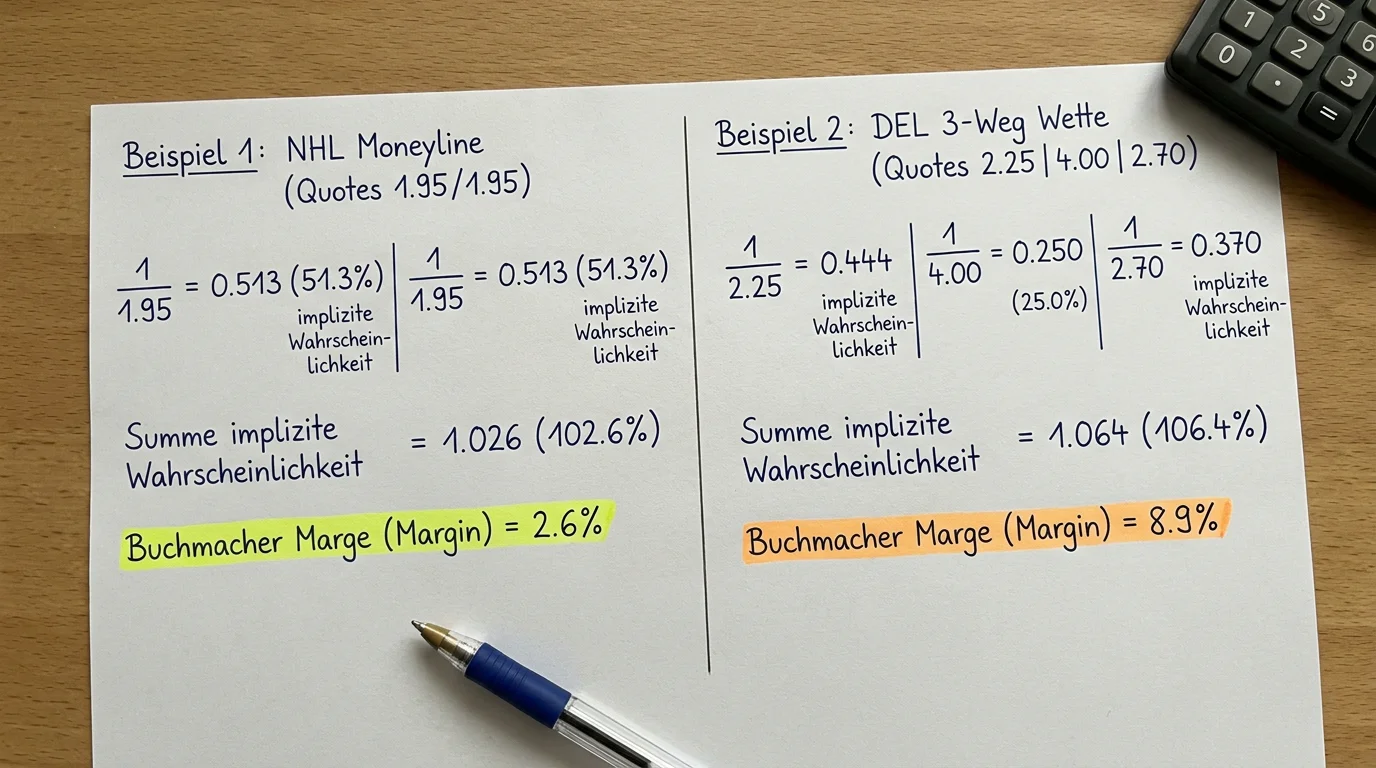 Beispiel 1: NHL Moneyline
(Quotes 1.95/1.95)
1/1.95 = 0.513 (51.3%) | 1/1.95 = 0.513 (51.3%)
implizite
Wahrschein-
lichkeit
implizite
Wahrschein-
lichkeit
Summe implizite
Wahrscheinlichkeit = 1.026 (102.6%)
Buchmacher Marge (Margin) = 2.6%
Beispiel 2: DEL 3-Weg Wette
(Quotes 2.25|4.00|2.70)
1/2.25 = 0.444 | 1/4.00 = 0.250 | 1/2.70 = 0.370
implizite
Wahrschein-
lichkeit
(25.0%)
implizite
Wahrschein-
lichkeit
Summe implizite
Wahrscheinlichkeit = 1.064 (106.4%)
Buchmacher Marge (Margin) = 8.9%
1 5 6
0 2 3
. =